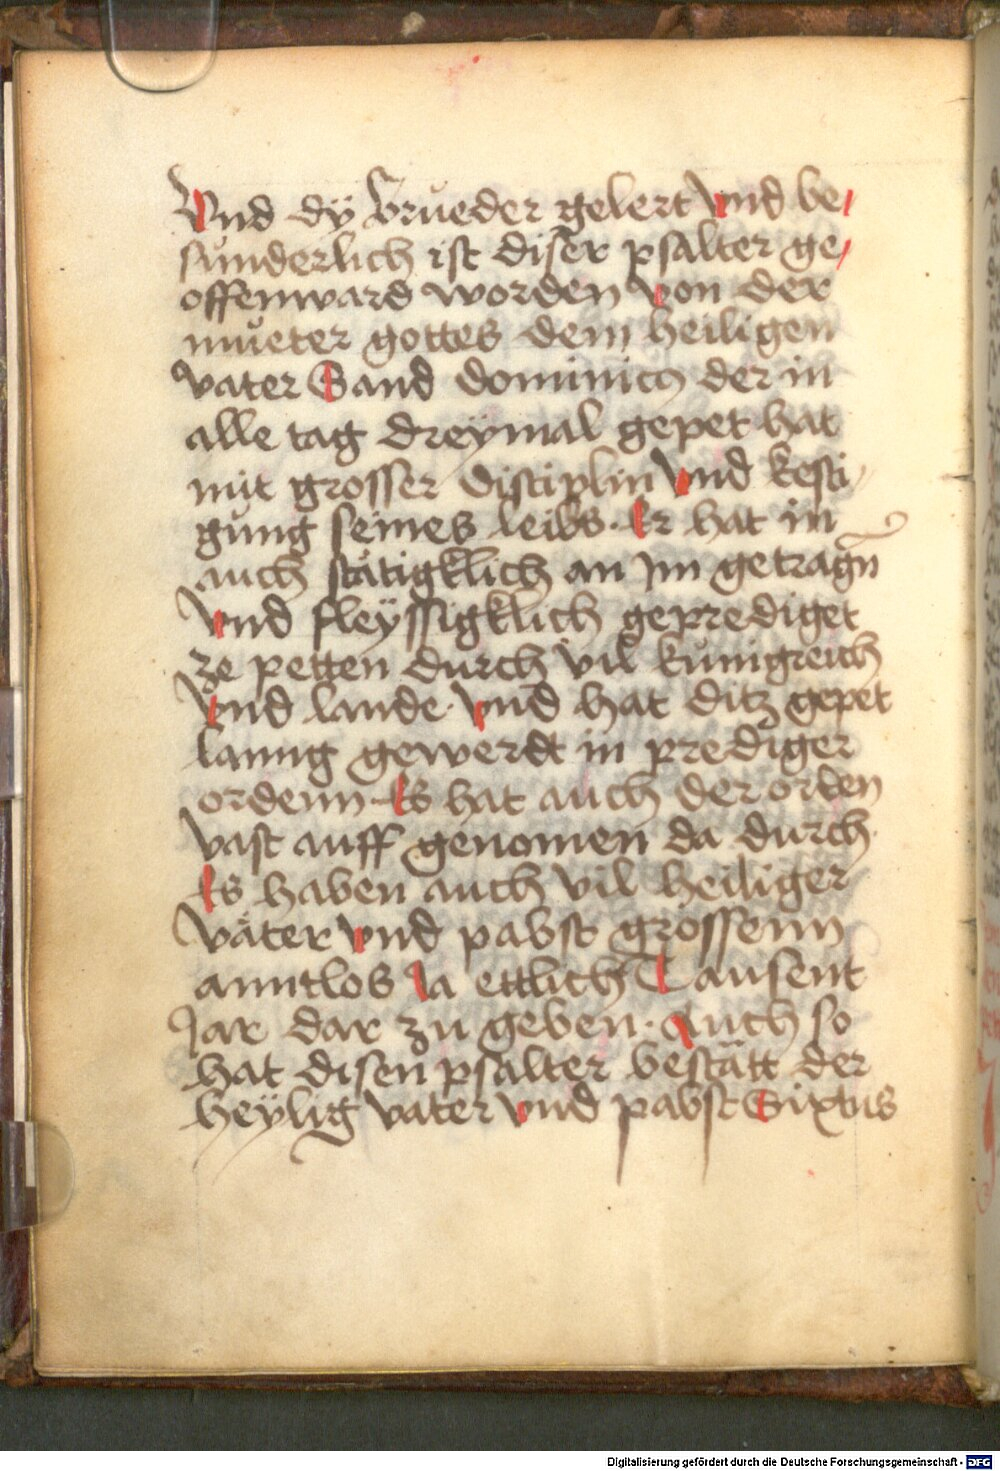 Vnd dÿ brueder gelert vnd be/
sunderlich ist diser psalter ge/
offenward worden von der
mueter gottes dem heiligen
vater Sand dominico der in
alle tag dreÿmal gepet hat
mit grosser disciplin vnd kesti/
gung seines leibs. Er hat in
auch stätigklich an im getragn
vnd fleÿssigklich geprediget
ze petten durch vil kunigreich
vnd lande. vnd hat ditz gepet
lanng gewerdt in prediger
ordenn. Es hat auch der orden
vast auff genomen da durch.
Es haben auch vil heiliger
väter vnd pabst grossenn
anntlos Ja ettlich Tausent
Jar dar zu geben. Auch so
hat disen psalter bestätt der
heÿlig vater vnd pabst Sixtus
Digitalisierung gefördert durch die Deutsche Forschungsgemeinschaft - DFG